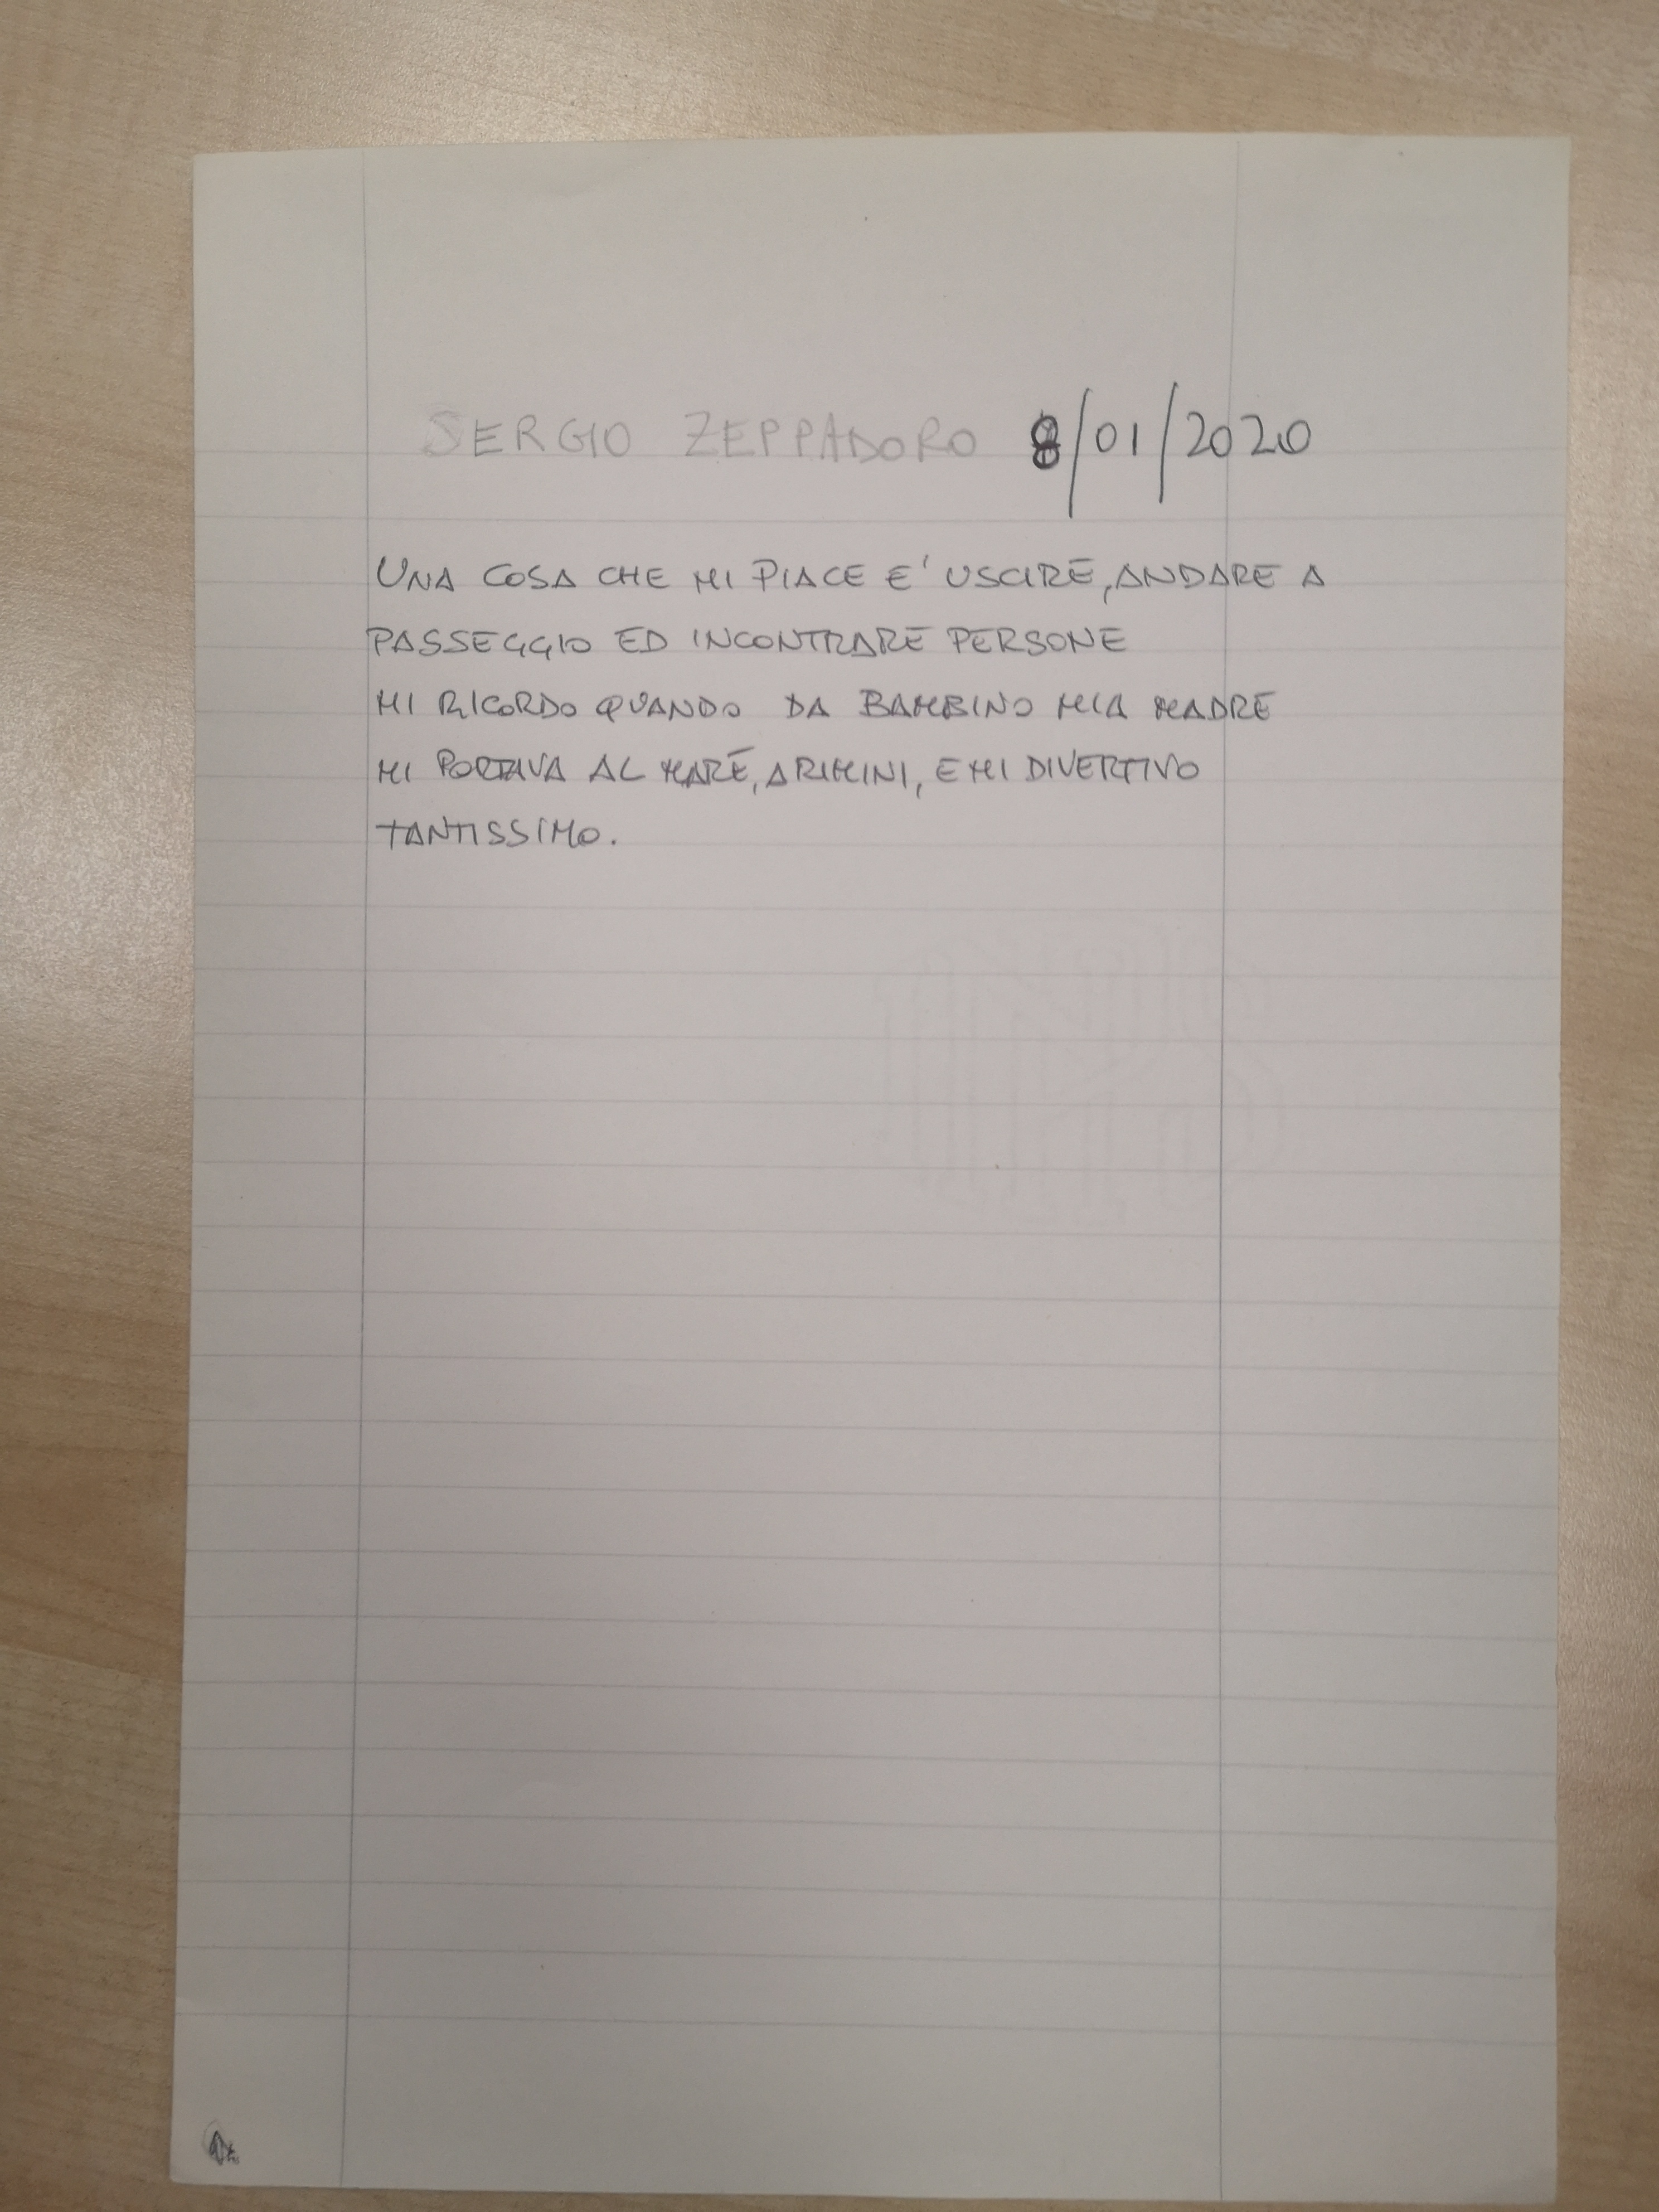 SERGIO ZEPPADORO 8/01/2020
UNA COSA CHE MI PIACE E' USCIRE, ANDARE A
PASSEGGIO ED INCONTRARE PERSONE
MI RICORDO QUANDO DA BAMBINO MIA MADRE
MI PORTAVA AL MARE, A RIMINI, E MI DIVERTIVO
TANTISSIMO.